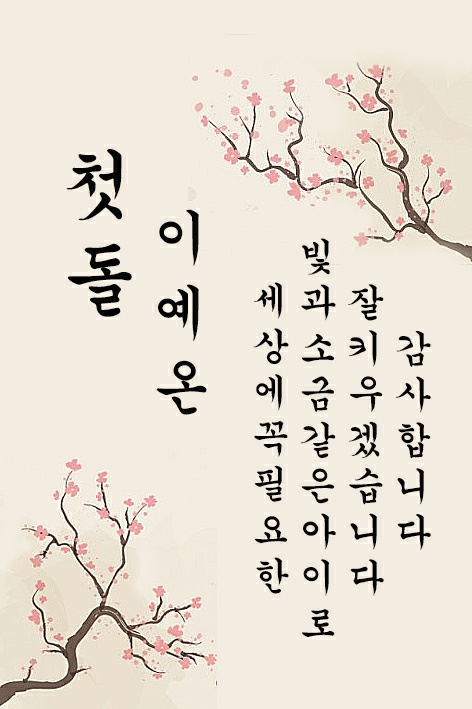 첫돌
이예온
세상에꼭필요한
빛과소금같은아이로
잘키우겠습니다
감사합니다